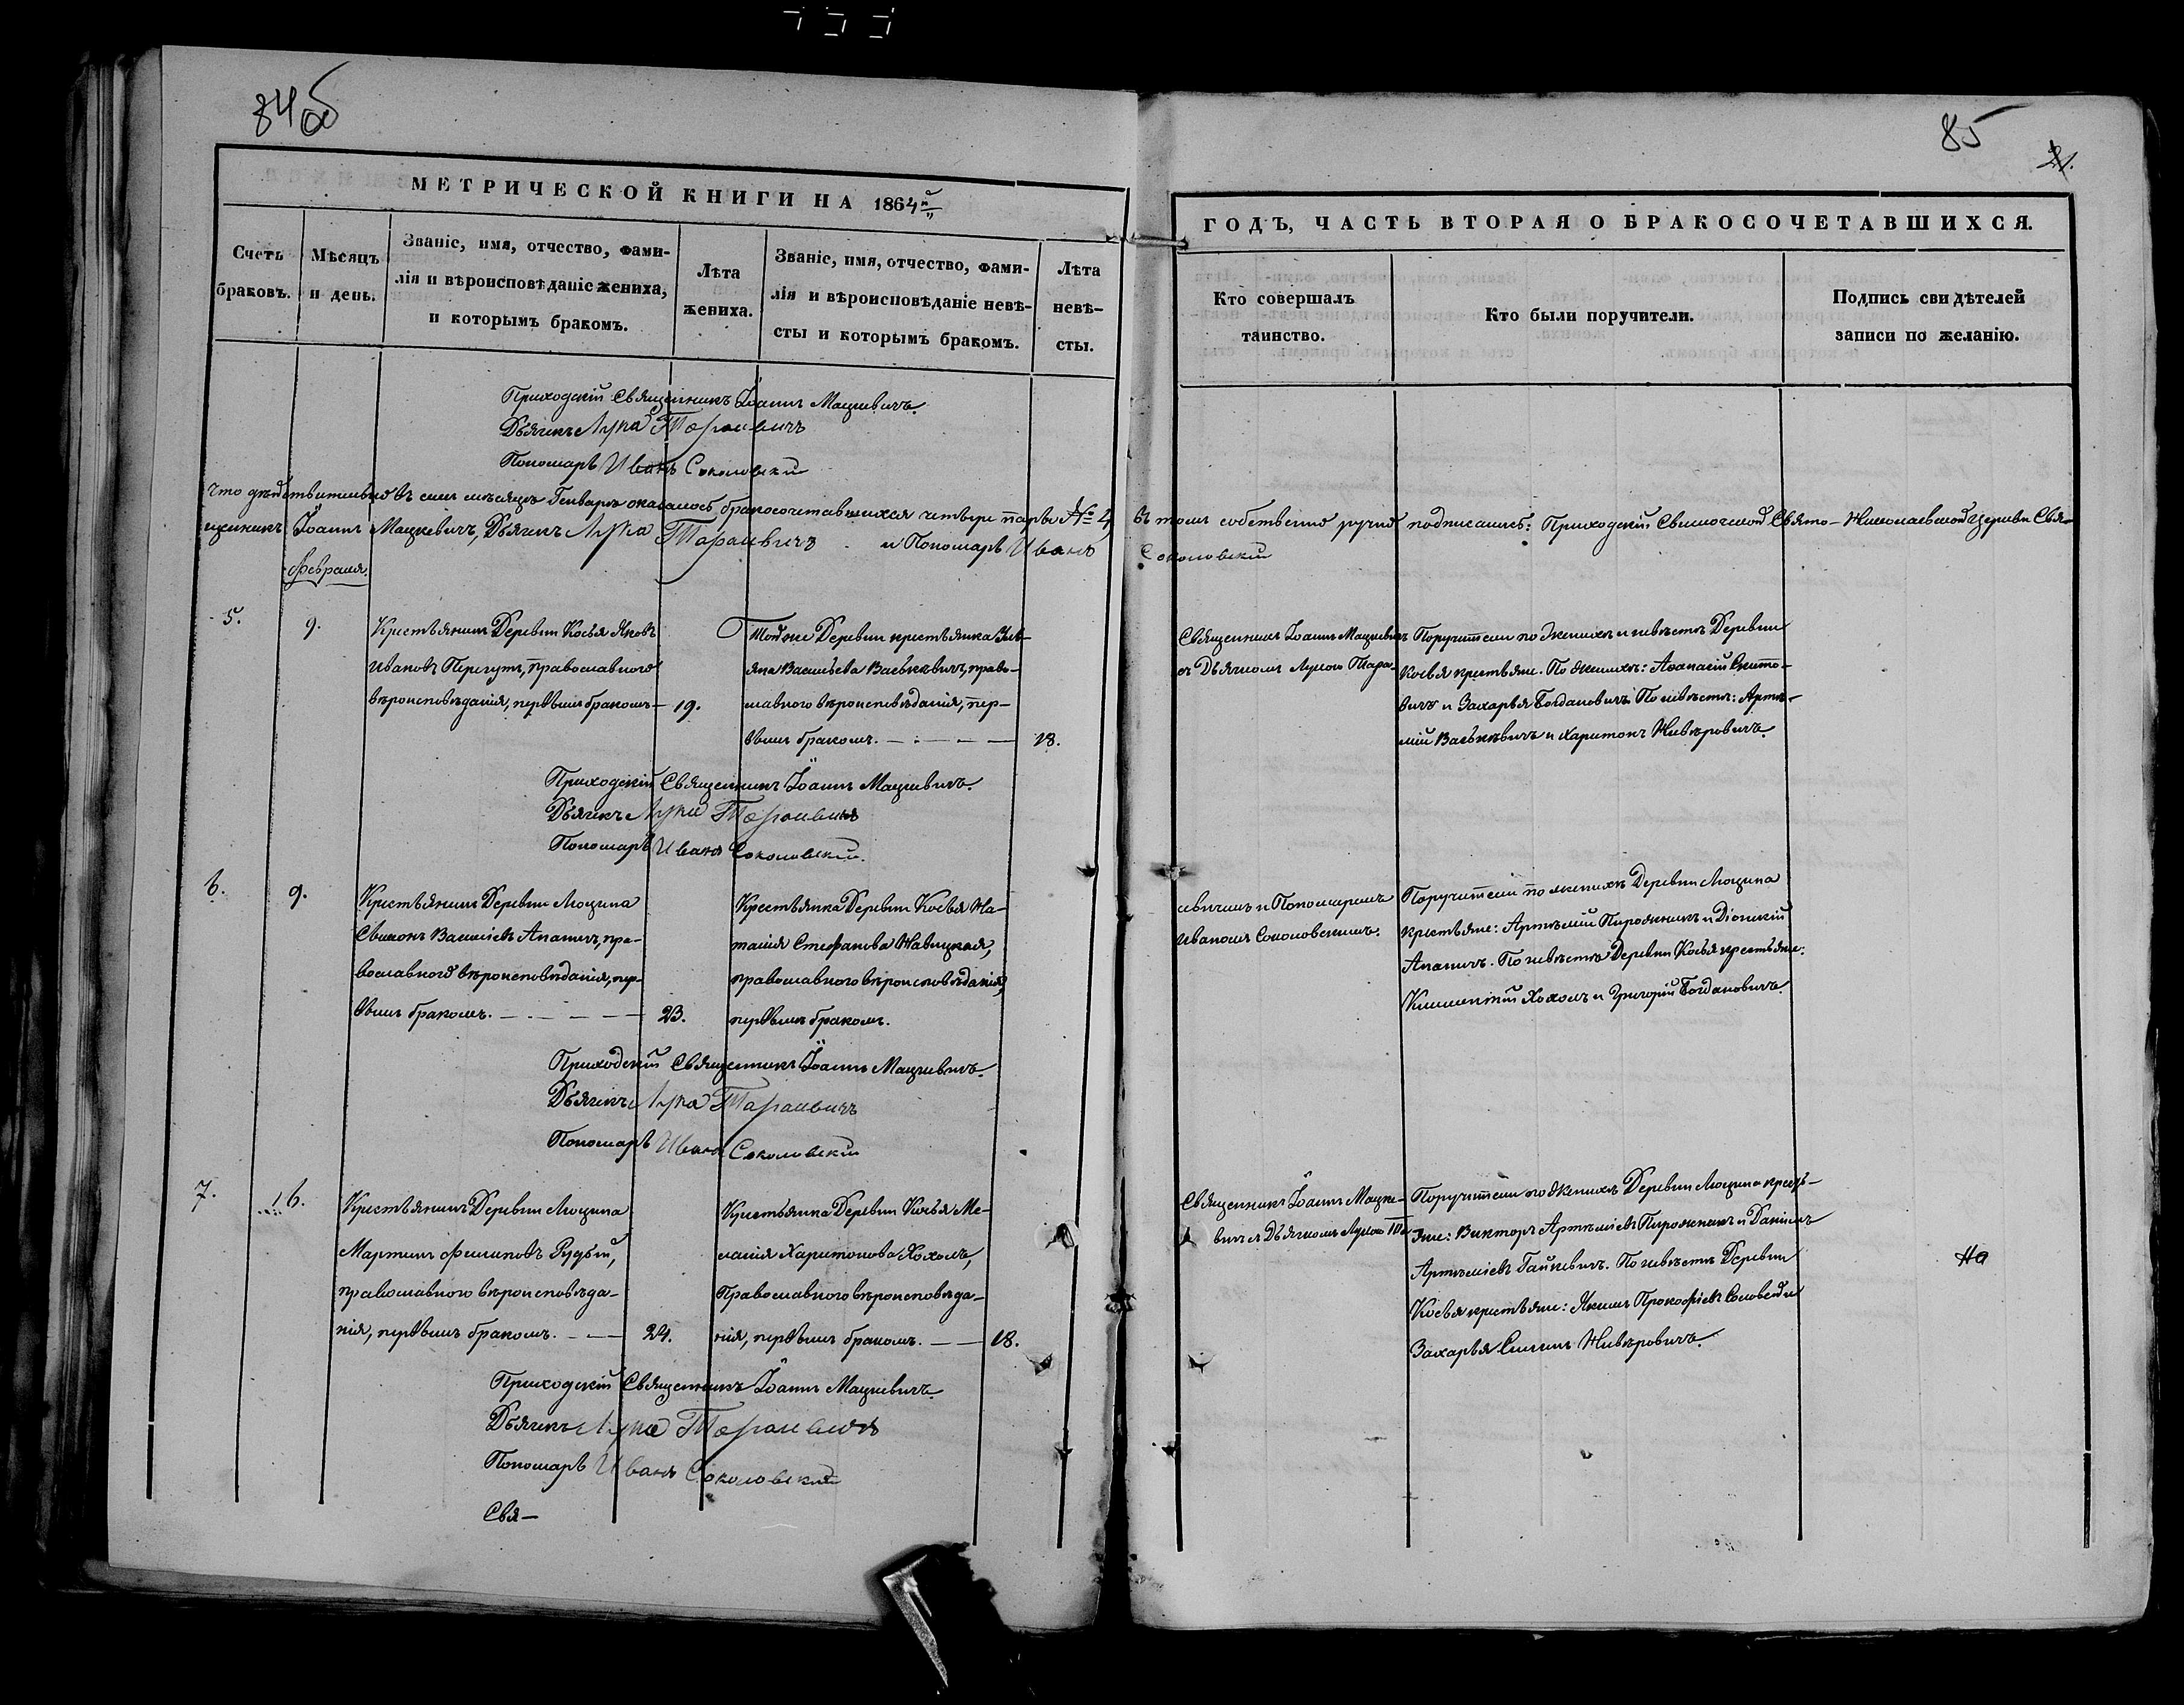 84об
МЕТРИЧЕСКОЙ КНИГИ НА 1864й
Счетъ браковъ.
Мѣсяцъ и день.
Званіе, имя, отчество, фами-
лія и вѣроисповѣданіе жениха,
и которымъ бракомъ.
Лѣта
жениха.
Званіе, имя, отчество, фами-
лія и вѣроисповѣданіе невѣ-
сты и которымъ бракомъ.
Лѣта
невѣ-
сты.
Приходскій Священникъ Іоаннъ Мацкевичъ.
Дьячекъ Лука Тараневичъ
Пономарь Иванъ Соколовскій
Что дѣйствительно въ семъ мѣсяцѣ Генварѣ оказалось бракосочетавшихся четыре пары № 4,
щенникъ Іоаннъ Мацкевичъ, Дьячекъ Лука Тараневичъ и Пономарь Иванъ
Февраля.
5.
9.
Крестьянинъ Деревни Косья Яковъ
Ивановъ Перегутъ, православнаго
вѣроисповѣданія, первымъ бракомъ —
19.
Тойже Деревни крестьянка
Васильева Васькевичъ, право-
славного вѣроисповѣданія, пер-
вымъ бракомъ. — — — —
18.
Приходскій Священникъ Іоаннъ Мацкевичъ.
Дьячекъ Лука Тараневичъ
Пономарь Иванъ Соколовскій.
6.
9.
Крестьянинъ Деревни Люцина
Симонъ Васильевъ Апаничъ, пра-
вославного вѣроисповѣданія, пер-
вымъ бракомъ. — — — —
23.
Крестьянка Деревни Косья На-
талія Стефанова Навицкая,
православного вѣроисповѣданія,
первымъ бракомъ.
Приходскій Священникъ Іоаннъ Мацкевичъ.
Дьячекъ Лука Тараневичъ
Пономарь Иванъ Соколовскій
7.
16.
Крестьянинъ Деревни Люцина
Мартинъ Филиповъ Рудый,
православного вѣроисповѣда-
нія, первымъ бракомъ. — —
24.
Крестьянка Деревни Косья Ме-
ланія Харитонова Хохолъ,
Православного вѣроисповѣда-
нія, первымъ бракомъ. — —
18.
Приходскій Священникъ Іоаннъ Мацкевичъ.
Дьячекъ Лука Тараневичъ
Пономарь Иванъ Соколовскій
Свя—
85
21.
ГОДЪ, ЧАСТЬ ВТОРАЯ О БРАКОСОЧЕТАВШИХСЯ.
Кто совершалъ
таинство.
Кто были поручители.
Подпись свидѣтелей
записи по желанію.
въ томъ собственно ручно подписались: Приходскій Свято-Николаевской церкви Свя-
Соколовскій
Священникъ Іоаннъ Мацкевичъ
съ Дьячкомъ Лукою Тара-
Поручители по женихѣ и невѣстѣ Деревни
Косья крестьяне. По женихѣ: Аѳанасій
и Захарья Богдановичъ. По невѣстѣ: Артѣ-
мій Васькевичъ и Харитонъ Нивѣровичъ.
невичемъ и Пономаремъ
Иваномъ Соколовскимъ.
Поручители по женихѣ Деревни Люцина
крестьяне: Артѣмій Пирожникъ и Діонисій
Апаничъ. По невѣстѣ Деревни Косья крестьяне:
Климентій Хохолъ и Григорій Богдановичъ.
Священникъ Іоаннъ Мацке-
вичъ съ Дьячкомъ Лукою
Поручители по женихѣ Деревни Люцина кресть-
яне: Викторъ Артѣміевъ Пирожникъ и Даніилъ
Артѣміевъ Гайкевичъ. По невѣстѣ Деревни
Косья крестьяне: Якимъ Прокофіевъ Соловей и
Захарья Нивѣровичъ.
На